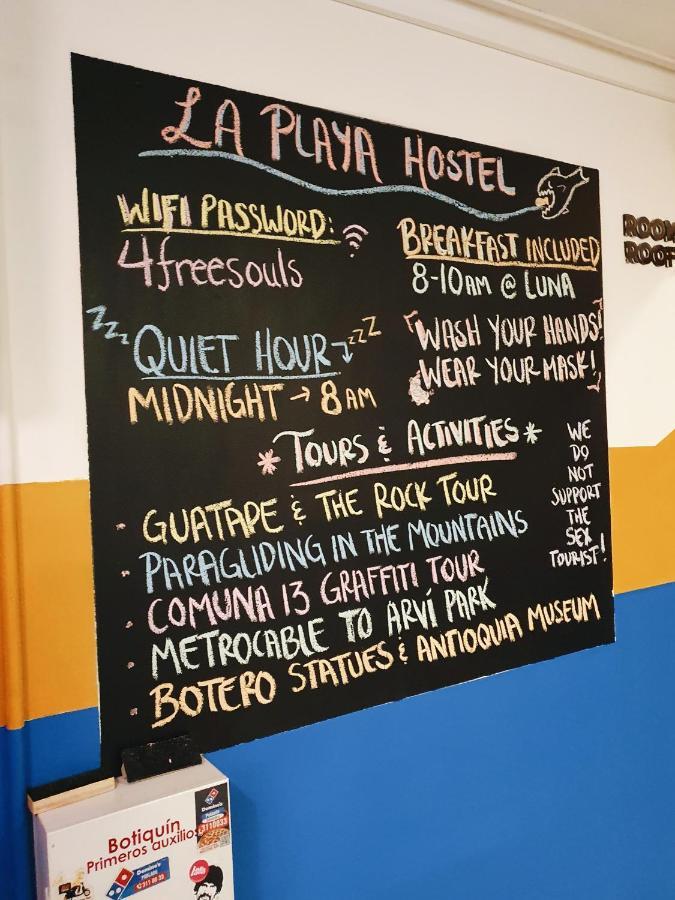 LA PLAYA HOSTEL
WIFI PASSWORD:
4freesouls
BREAKFAST INCLUDED
8-10AM @ LUNA
ZZZ QUIET HOUR ZZZ
MIDNIGHT → 8AM
WASH YOUR HANDS!
WEAR YOUR MASK!
* TOURS & ACTIVITIES *
GUATAPE & THE ROCK TOUR
PARAGLIDING IN THE MOUNTAINS
COMUNA 13 GRAFFITI TOUR
METROCABLE TO ARVÍ PARK
BOTERO STATUES & ANTIOQUIA MUSEUM
WE
DO
NOT
SUPPORT
THE
SEX
TOURIST!
ROOF
Botiquín
Primeros auxilios
Domino's
3110033
Domino's
311 00 33